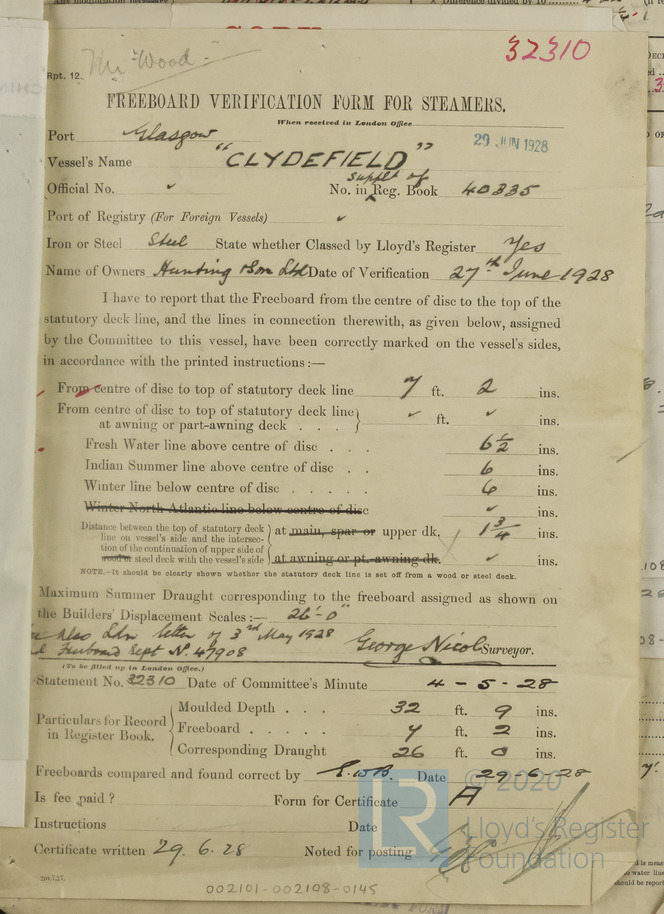 32310
Mr Wood
Rpt. 12.
FREEBOARD VERIFICATION FORM FOR STEAMERS.
When received in London Office
29 JUN 1928
Port Glasgow
Vessel's Name "CLYDEFIELD"
Official No. ✓ No. in Supplt of Reg. Book 40335
Port of Registry (For Foreign Vessels) ✓
Iron or Steel Steel State whether Classed by Lloyd's Register Yes
Name of Owners Hunting & Son Ltd Date of Verification 27th June 1928
I have to report that the Freeboard from the centre of disc to the top of the
statutory deck line, and the lines in connection therewith, as given below, assigned
by the Committee to this vessel, have been correctly marked on the vessel's sides,
in accordance with the printed instructions:—
From centre of disc to top of statutory deck line 7 ft. 2 ins.
From centre of disc to top of statutory deck line
at awning or part-awning deck . . . ✓ ft. ✓ ins.
Fresh Water line above centre of disc . . . 6½ ins.
Indian Summer line above centre of disc . . 6 ins.
Winter line below centre of disc . . . . . 6 ins.
Winter North Atlantic line below centre of disc ✓ ins.
Distance between the top of statutory deck
line on vessel's side and the intersec-
tion of the continuation of upper side of
wood or steel deck with the vessel's side
at main, spar or upper dk. 1¾ ins.
at awning or pt. awning dk. ✓ ins.
NOTE.—It should be clearly shown whether the statutory deck line is set off from a wood or steel deck.
Maximum Summer Draught corresponding to the freeboard assigned as shown on
the Builders' Displacement Scales:— 26'-0"
also Ldn letter of 3rd May 1928
Freeboard Rept No. 47908 George Nicol Surveyor.
(To be filled up in London Office.)
Statement No. 32310 Date of Committee's Minute 4-5-28
Particulars for Record
in Register Book.
Moulded Depth . . . 32 ft. 9 ins.
Freeboard . . . . . 7 ft. 2 ins.
Corresponding Draught 26 ft. 0 ins.
Freeboards compared and found correct by E.W.B. Date 29-6-28
Is fee paid? Form for Certificate A
Instructions Date
Certificate written 29.6.28 Noted for posting
© 2020
Lloyd's Register
Foundation
002101-002108-0145